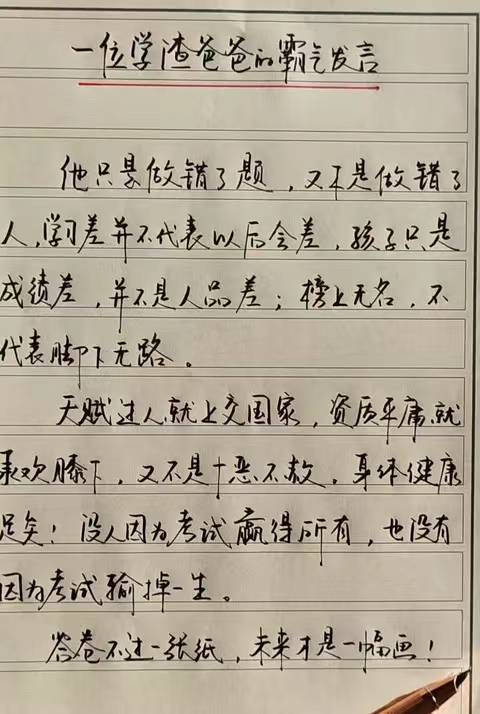 一位学渣爸爸的霸气发言
他只是做错了题，又不是做错了
人，学习差并不代表以后会差，孩子只是
成绩差，并不是人品差；榜上无名，不
代表脚下无路。
天赋过人就上交国家，资质平庸就
承欢膝下，又不是十恶不赦，身体健康
足矣！没人因为考试赢得所有，也没有
因为考试输掉一生。
答卷不过一张纸，未来才是一幅画！